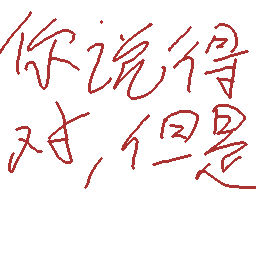 你说得
对，但是